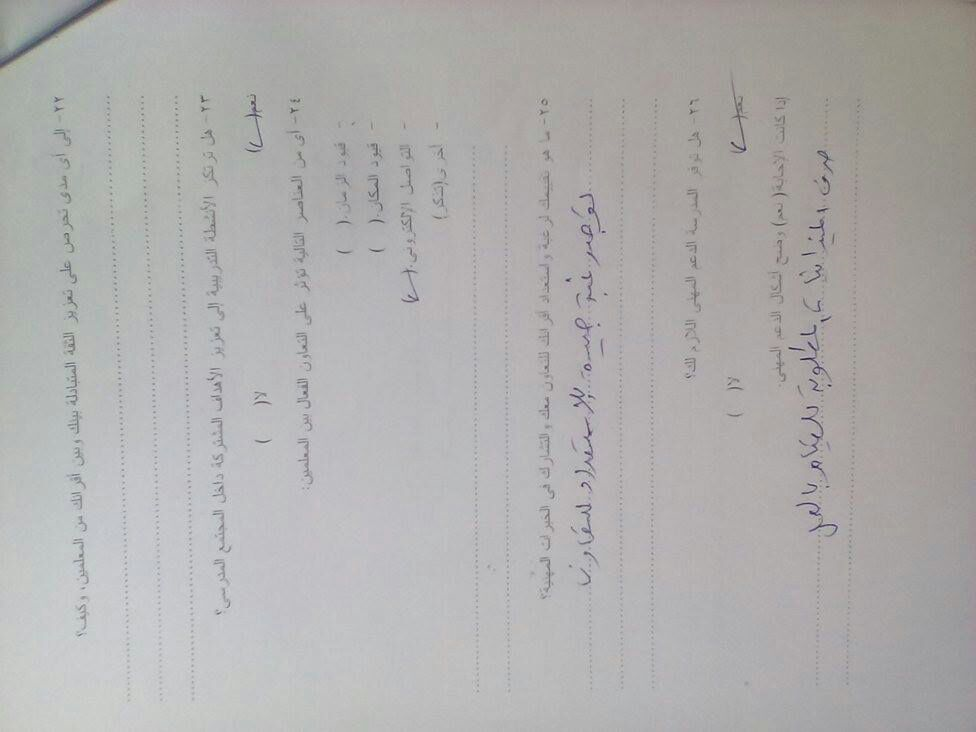 ٢٢- إلى أى مدى تحرص على تعزيز الثقة المتبادلة بينك وبين أقرانك من المعلمين، وكيف؟
٢٣- هل ترتكز الأنشطة التدريبية إلى تعزيز الأهداف المشتركة داخل المجتمع المدرسى؟
نعم (✓) لا ( )
٢٤- أى من العناصر التالية تؤثر على التعاون الفعال بين المعلمين:
- قيود الزمان. ( )
- قيود المكان. ( )
- التواصل الإلكترونى. (✓)
- أخرى (تذكر)
٢٥- ما هو تقييمك لرغبة واستعداد أقرانك للتعاون معك والتشارك فى الخبرات المهنية؟
يوجد رغبة جيدة بالاستعداد للتعاون
٢٦- هل توفر المدرسة الدعم المهنى اللازم لك؟
نعم (✓) لا ( )
إذا كانت الإجابة (نعم) وضح أشكال الدعم المهنى.
صرف المطلوبة للقيام بالعمل